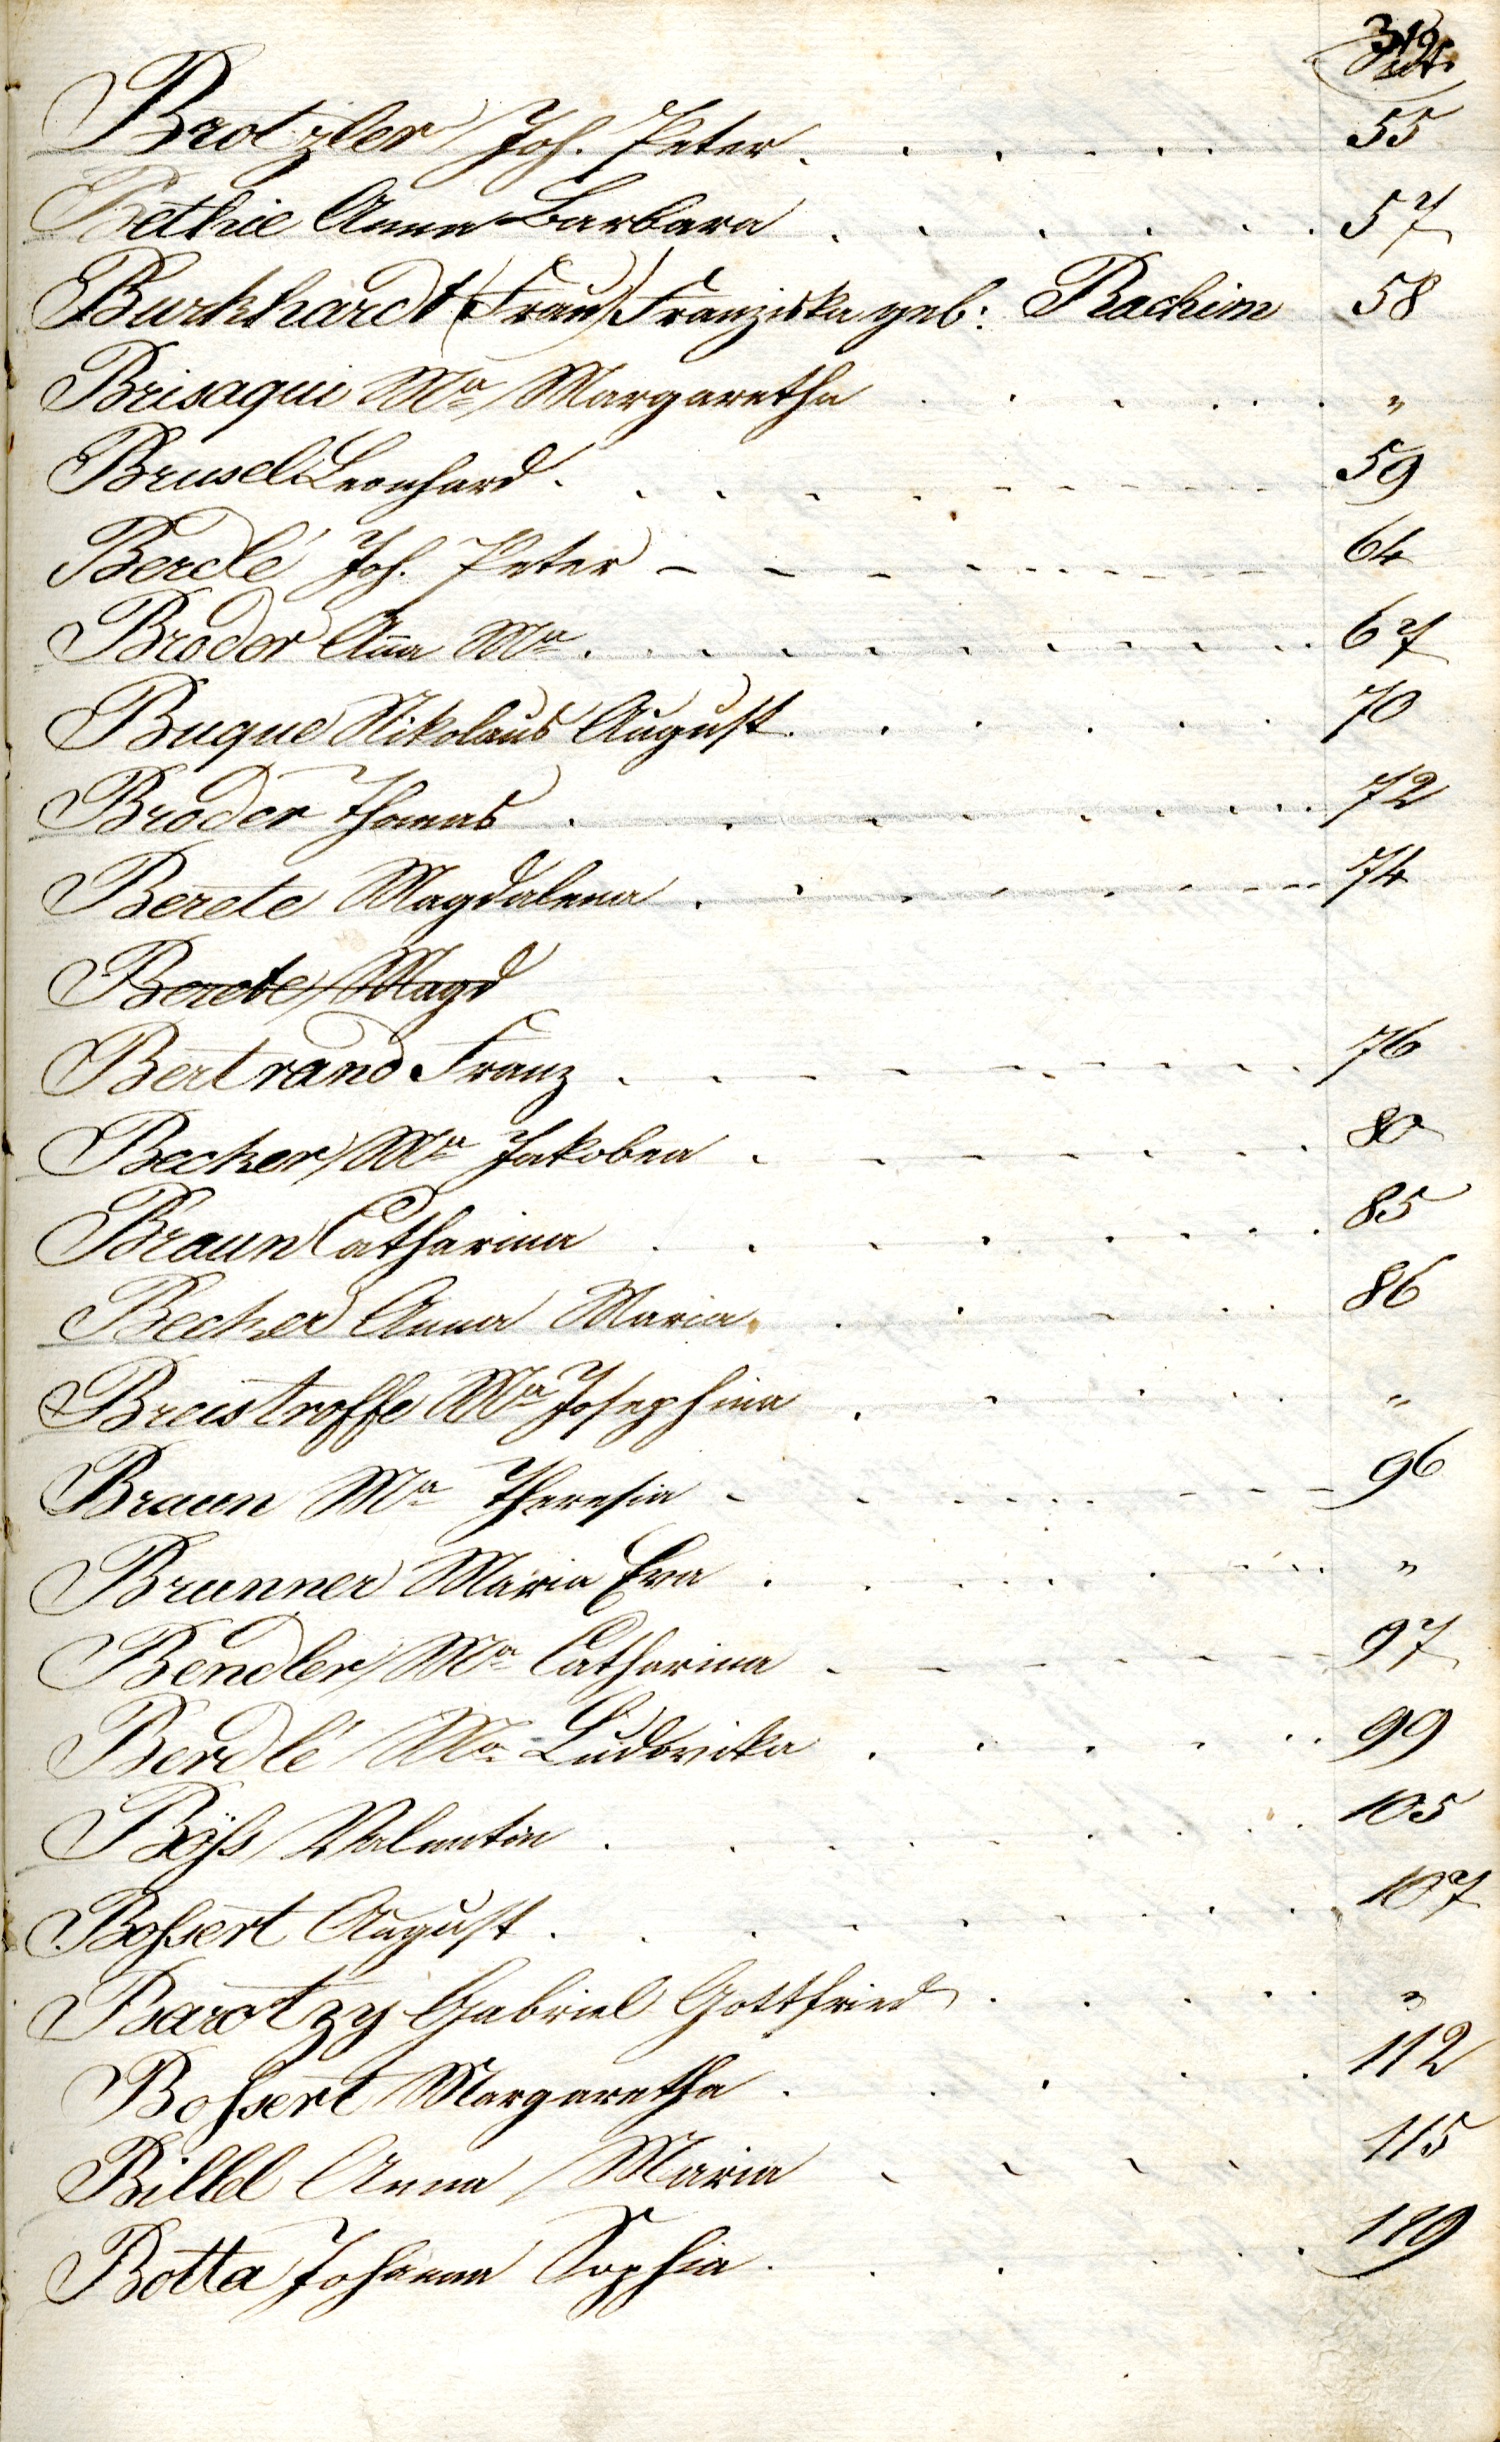 319
Brotzler Joh. Peter. . . . . . . 55
Bethie Anna Barbara . . . . . . . 57
Burkhardt (Frau) Franziska geb: Rachim 58
Brisaqui Ma Margaretha . . . . . . "
Brusel Leonhard . . . . . . . 59
Berdlé Joh. Peter - - - - - - - 64
Broder Aña Ma . . . . . . . 67
Buque Nikolaus August . . . . . 70
Broder Thomas . . . . . . . 72
Berete Magdalena . . . . . . . 74
Berete Magd
Bertrand Franz . . . . . . . 76
Becker Ma Jakobea . . . . . . . 80
Braun Catharina . . . . . . . 85
Becker Anna Maria . . . . . 86
Breistroffe Ma Josephina . . . . . "
Braun Ma Theresia . . . . . . . 96
Brunner Maria Eva . . . . . . . "
Bendler Ma Catharina . . . . . . . 97
Berdlé Ma Ludovika . . . . . . 99
Byß Valentin . . . . . . . 105
Boßert August . . . . . . . 107
Barotzy Gabriel Gottfried . . . . . "
Boßert Margaretha . . . . . 112
Billel Anna Maria . . . . 115
Botta Johanna Sophia . . . . . 119